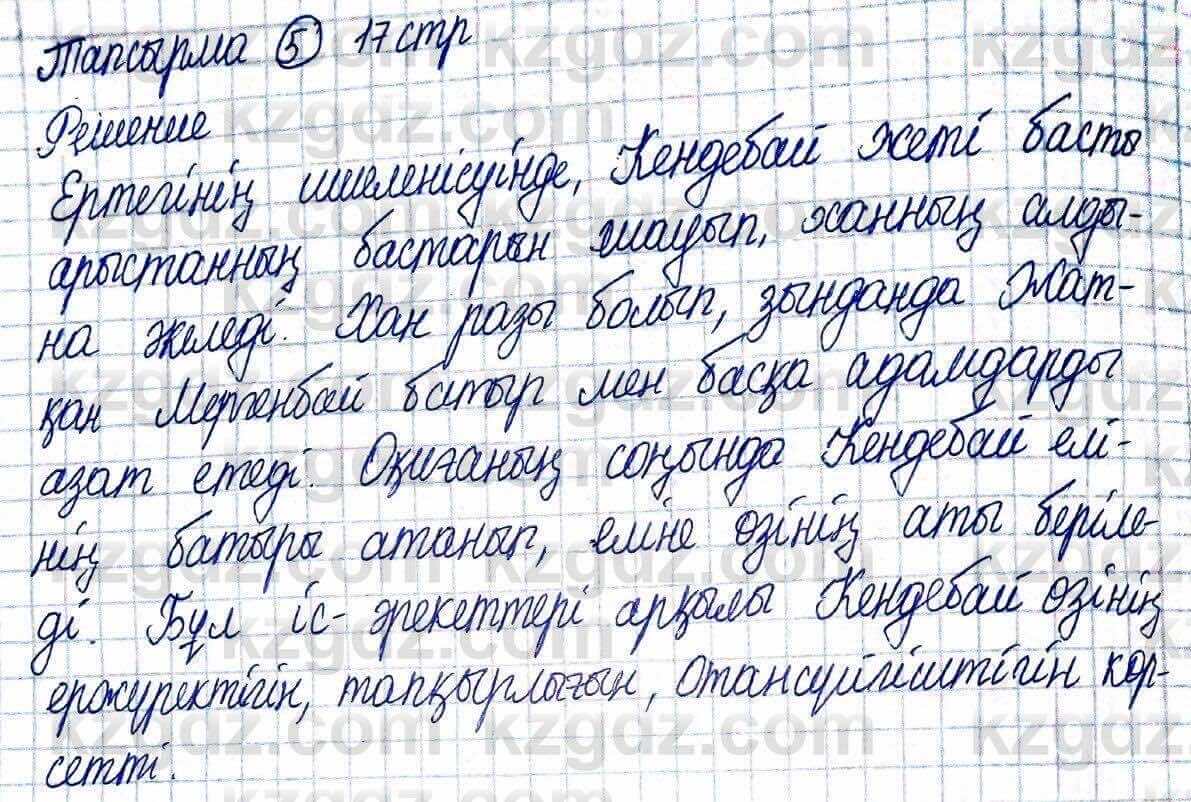 Тапсырма 5 17 стр
Решение
Ертегінің шиеленісуінде, Кендебай жеті басты
арыстанның бастарын шауып, ханның алды-
на әкеледі. Хан разы болып, зынданда жат-
қан Мергенбай батыр мен басқа адамдарды
азат етеді. Оқиғаның соңында Кендебай елі-
нің батыры атанып, еліне өзінің аты беріле-
ді. Бұл іс-әрекеттері арқылы Кендебай өзінің
ержүректігін, тапқырлығын, Отансүйгіштігін көр-
сетті.
kzgdz.com